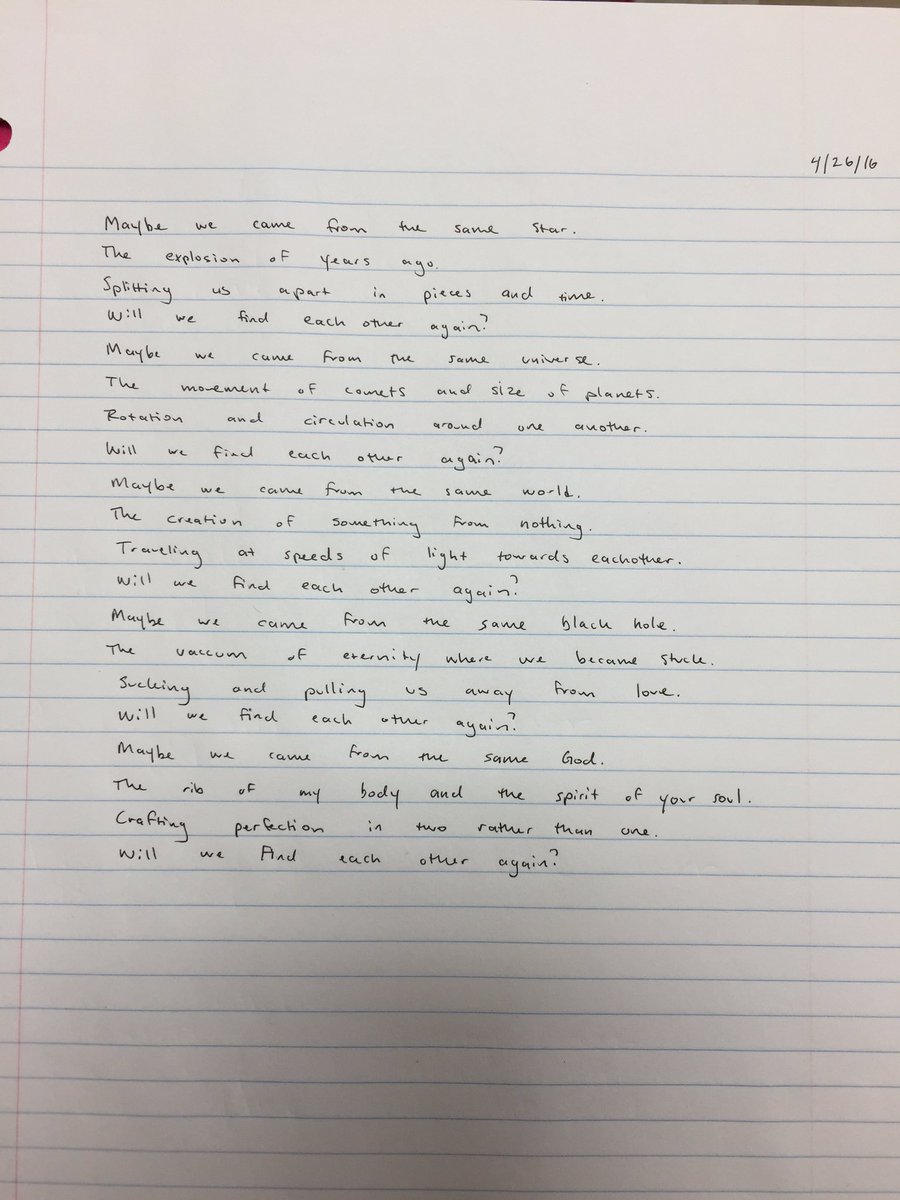 4/26/16
Maybe we came from the same star.
The explosion of years ago.
Splitting us apart in pieces and time.
Will we find each other again?
Maybe we came from the same universe.
The movement of comets and size of planets.
Rotation and circulation around one another.
Will we find each other again?
Maybe we came from the same world.
The creation of something from nothing.
Traveling at speeds of light towards eachother.
Will we find each other again?
Maybe we came from the same black hole.
The vaccum of eternity where we became stuck.
Sucking and pulling us away from love.
Will we find each other again?
Maybe we came from the same God.
The rib of my body and the spirit of your soul.
Crafting perfection in two rather than one.
Will we find each other again?